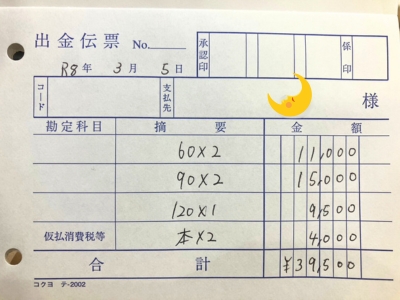 出金伝票 No.
承認印 係印
R8年 3月 5日
コード 支払先 様
勘定科目 摘要 金額
60×2 11,000
90×2 15,000
120×1 9,500
仮払消費税等 本×2 4,000
合計 ¥39,500
コクヨ テ-2002